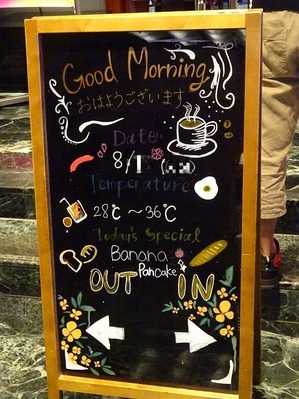 Good Morning
おはようございます
Date
8/1
Temperature
28℃ ~ 36℃
Today's Special
Banana
Pancake
OUT IN